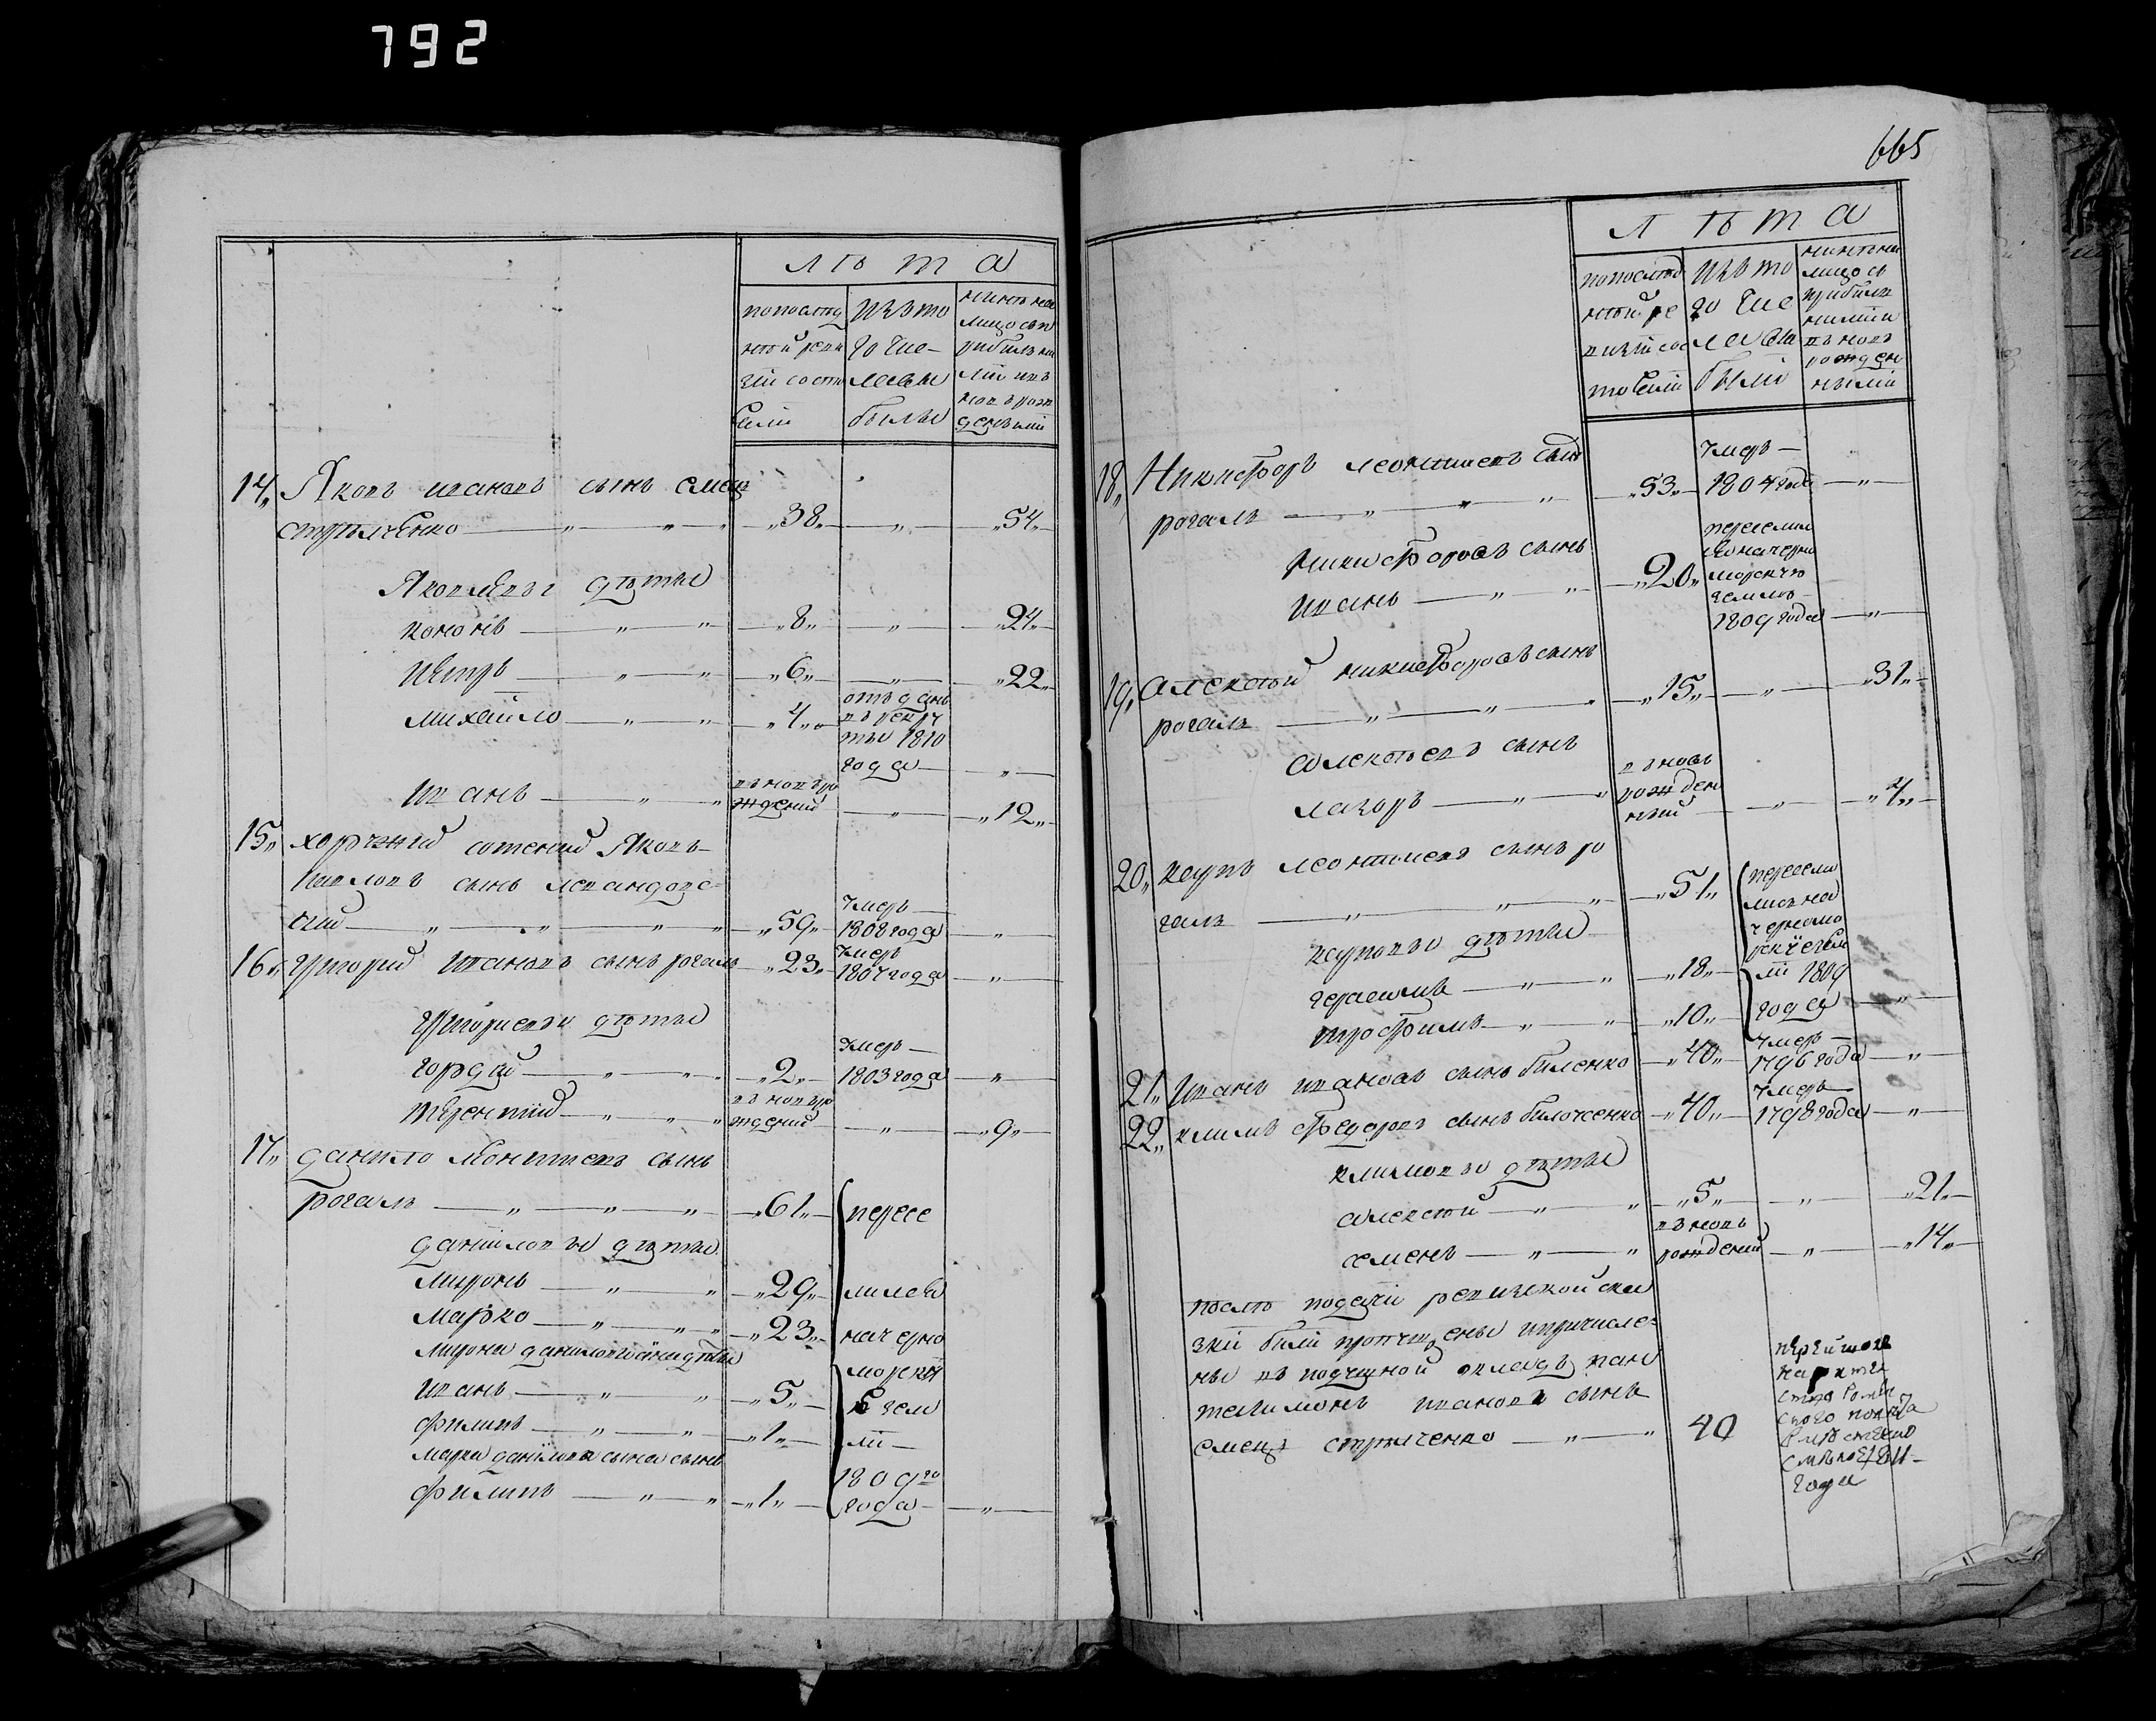 792
лѣта
попослѣд
ней реви
зіи состо
яли
изъ то
го чис-
ла вы
были
нынѣ на
лицо съ п
рибылы
ми изъ
новорож
денными
14 Яковъ ивановъ сынъ смец
стрѣлченко „ „ „ „38„ „ „54„
Яковлевы дѣти
кононъ „ „ „8„ „ „24„
Петръ „ „ „6„ „ „22„
михайло „ „ „4„
отъданъ
въ рекру
ты 1810
года „
Иванъ „ „
въновъро
жденный „ „12„
15„ хорунжий сотений Яковъ
Павловъ сынъ
ский „ „ „ „ „59„
умеръ
1808 года „
16„ григорий Ивановъ сынъ рогаль „23„
умеръ
1804 года „
григориевы дѣти
гордей „ „ „2„
умеръ
1803 года „
терентий „ „ „
въновъро
жденный „ „9„
17„ данило леонтиевъ сынъ
рогаль „ „ „ „61„ пересе
даниловы дѣти
миронъ „ „ „29„ лились
марко „ „ „ „23„ на черно
мирона данилова сына дѣти
морску
иванъ „ „ „5„ ю зем
филипъ „ „ „1„ лю
марка данилова сына сынъ
1809го
филипъ „ „ „1„ года „
665
лѣта
попослѣд
ней ре
визіи сос
тояли
изъ то
го чис
ла вы
были
нынѣ на
лицо съ
прибылы
ми и
въновъ
рожден
ными
18„ Никифоръ леонтиевъ сынъ
рогаль „ „ „ „53„
умеръ
1804 года „
никифоровъ сынъ
иванъ „ „ „20„
переселил
ся на черно
морскую
землю
1809 года „
19„ алексѣй никифоровъ сынъ
рогаль „ „ „15„ „ „31„
алексѣевъ сынъ
лазоръ „ „
въновь
рожден
ный „ „4„
20„ карпъ леонтиевъ сынъ ро
галь „ „ „ „51„
пересели
лись на
черномо
рскую зем
лю 1809
года „
карповы дѣти
герасимъ „ „ „18„
трофимъ „ „ „10„
21„ Иванъ ивановъ сынъ биленко „40„
умеръ
1796 года „
22„ климъ федоровъ сынъ билоченко „40„
умеръ
1798 года „
климовы дѣти
алексѣй „ „ „5„ „ „21„
семенъ „ „
въновъ
рожденный „ „14„
послѣ подачи ревизской ска
зки были пропущены и причисле-
ны въ подушной окладъ пан
телимонъ ивановъ сынъ
смец стрѣлченко „ „ 40
перейшолъ
1811
года